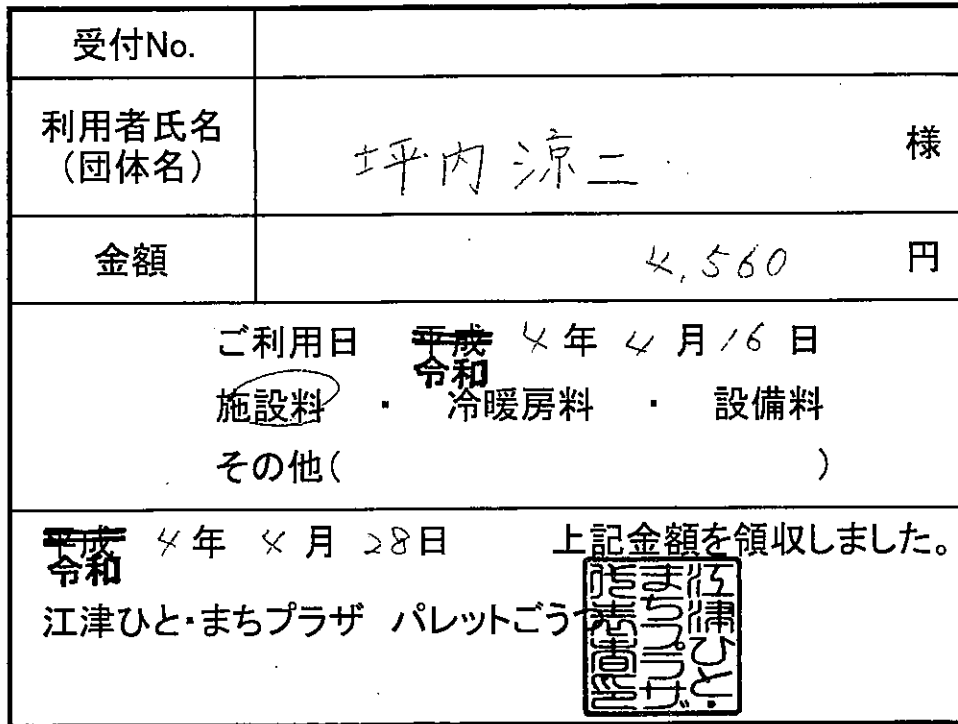 受付No.
利用者氏名
(団体名)
坪内涼二 様
金額 4,560 円
ご利用日 平成 令和 4年 4月16日
施設料 ・ 冷暖房料 ・ 設備料
その他( )
平成 令和 4年 4月 28日 上記金額を領収しました。
江津ひと・まちプラザ パレットごうつ
江津ひと・
まちプラザ